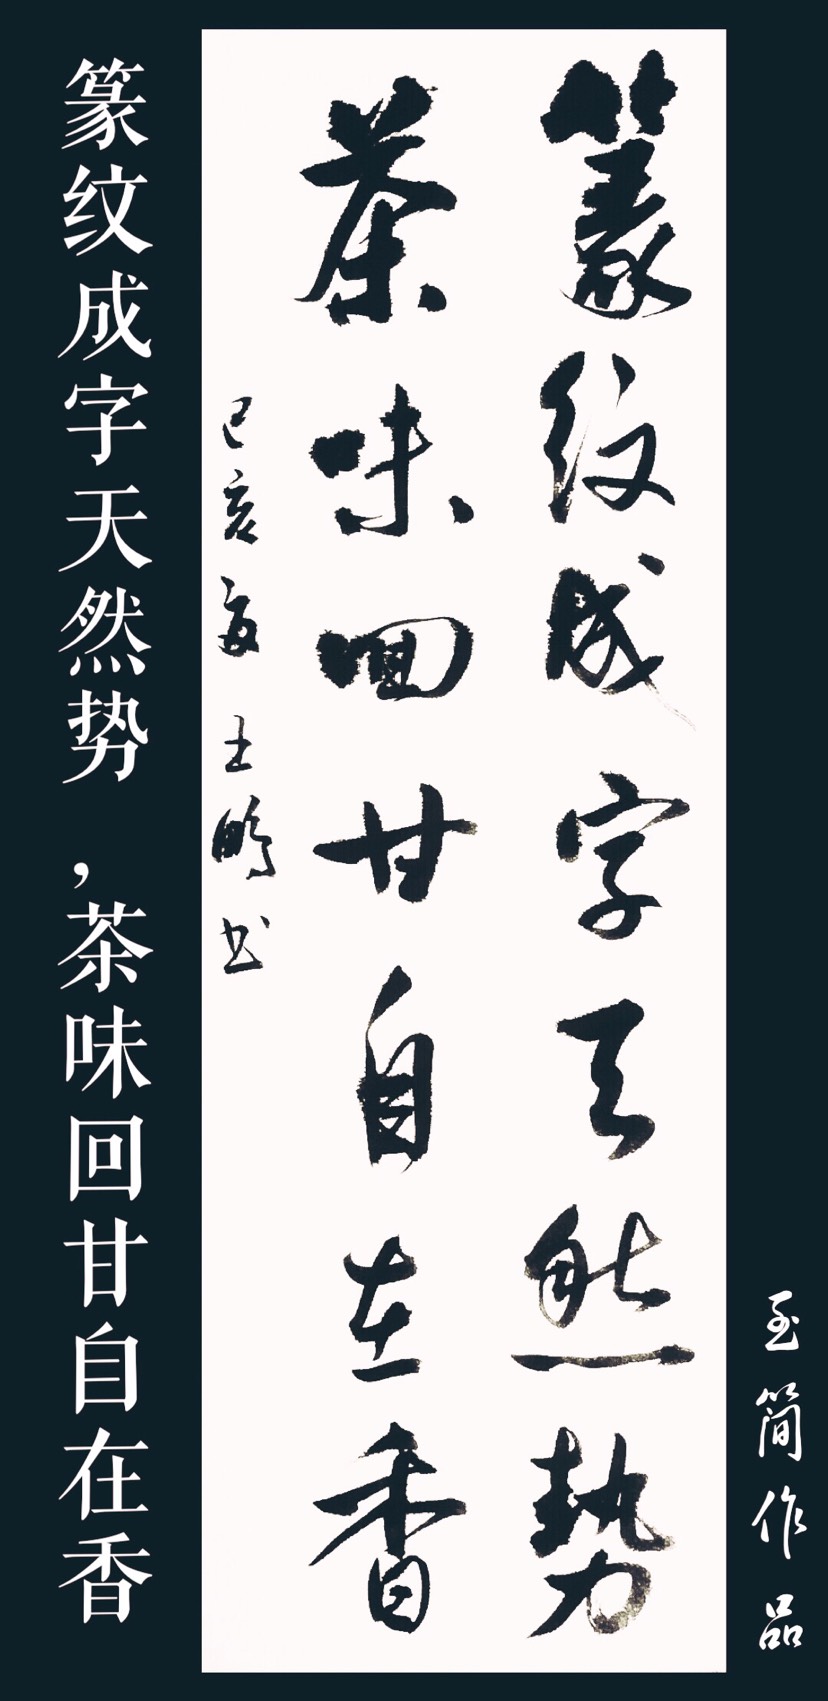 至简作品
篆纹成字天然勢
茶味回甘自在香
己亥夏 王 书
篆纹成字天然势,茶味回甘自在香